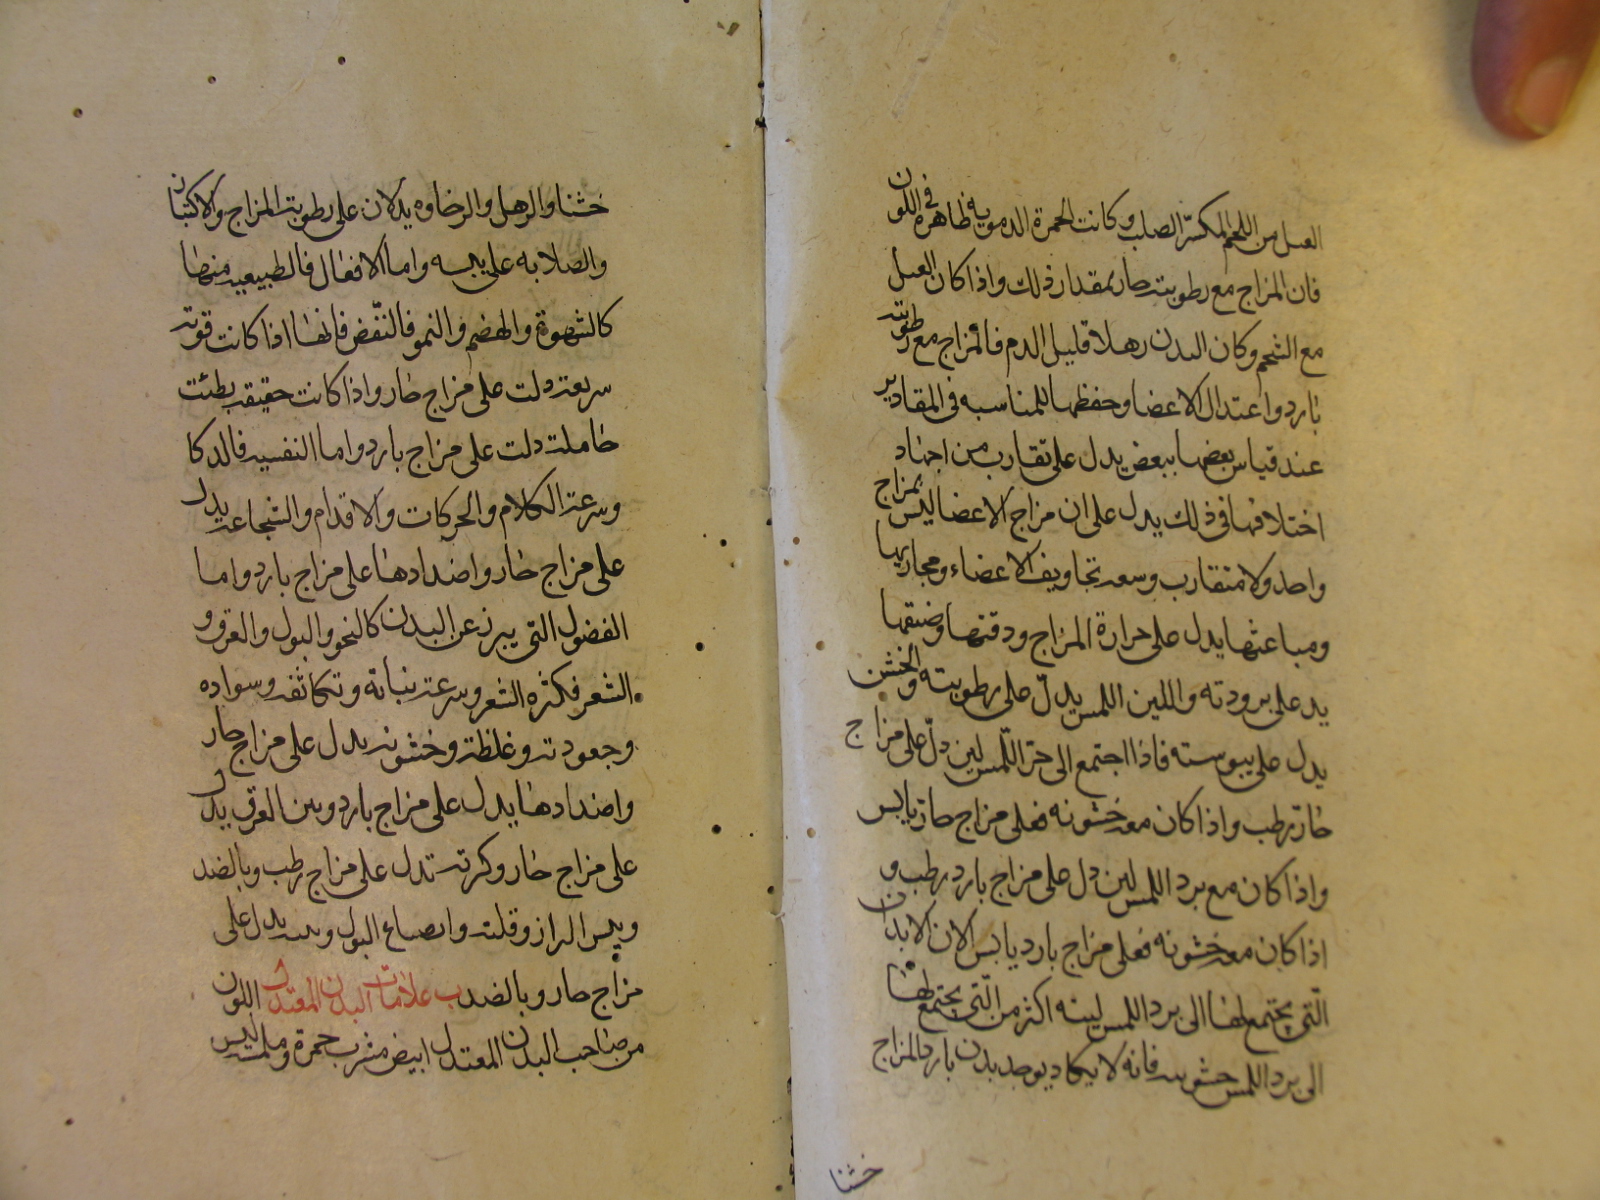 العبل من اللحم المكسّر الصلب وكانت الحمرة الدمويه ظاهره في اللون
فان المزاج مع رطوبته حار بمقدار ذلك واذا كان العبل
مع الشحم وكان البدن رهلا قليل الدم فالمزاج مع رطوبته
بارد واعتدال الاعضا وحفظها للمناسبه فى المقادير
عند قياس بعضها ببعض يدل على تقارب من اجهاد
اختلافها فى ذلك يدل على ان مزاج الاعضا ليس بمزاج
واحد ولا متقارب وسعة تجاويف الاعضاء ومجاريها
ومباعثها يدل على حرارة المزاج ودقتها وضيقها
يد على برودته واللين اللمس يدلّ على رطوبيته والخشن
يدل على يبوسته فاذا اجتمع الى حرّ اللّمس لين دلّ على مزاج
حارّ رطب واذا كان معه خشونه فعلى مزاج حارّ يابس
واذا كان مع برد اللمس لين دل على مزاج بارد رطب و
اذا كان معه خشونه فعلى مزاج بارد يابس الان الابدان
الّتى يجتمع لها الى برد اللمس لينه اكثر من الّتى يجتمع لها
الى برد اللمس خشونه فانه لا يكاد يوجد بدن بارد المزاج
خشنا
خشنا والرهل والرخاوه يدلان على رطوبة المزاج والاكتناز
والصلابه على يبسه واما الافعال فالطبيعيه منها
كالشهوة والهضم والنمو فالنقض فانها اذا كانت قوته
سريعة دلت على مزاج حار واذا كانت بطئت
حاملت دلت على مزاج بارد واما النفسيه فالدكا
وسرعة الكلام والحركات والاقدام والشجاعة يدل
على مزاج حار واضدادها على مزاج بارد واما
الفضول التى يبرز عن البدن كالنحو والبول والعرق و
الشعر فكثره الشعر وسرعة نباته وتكاثفه وسواده
وجعودته وغلظة وخشونه يدل على مزاج حار
واضدادها يدل على مزاج بارد وبين العرق يدل
على مزاج حار وكرته تدل على مزاج رطب وبالضد
ويبس البراز وقلته وانصباغ البول يدل على
مزاج حار وبالضد ب علامات البدن المعتدل اللون
من صاحب البدن المعتدل ابيض مشرب حمرة وملمسه ليس